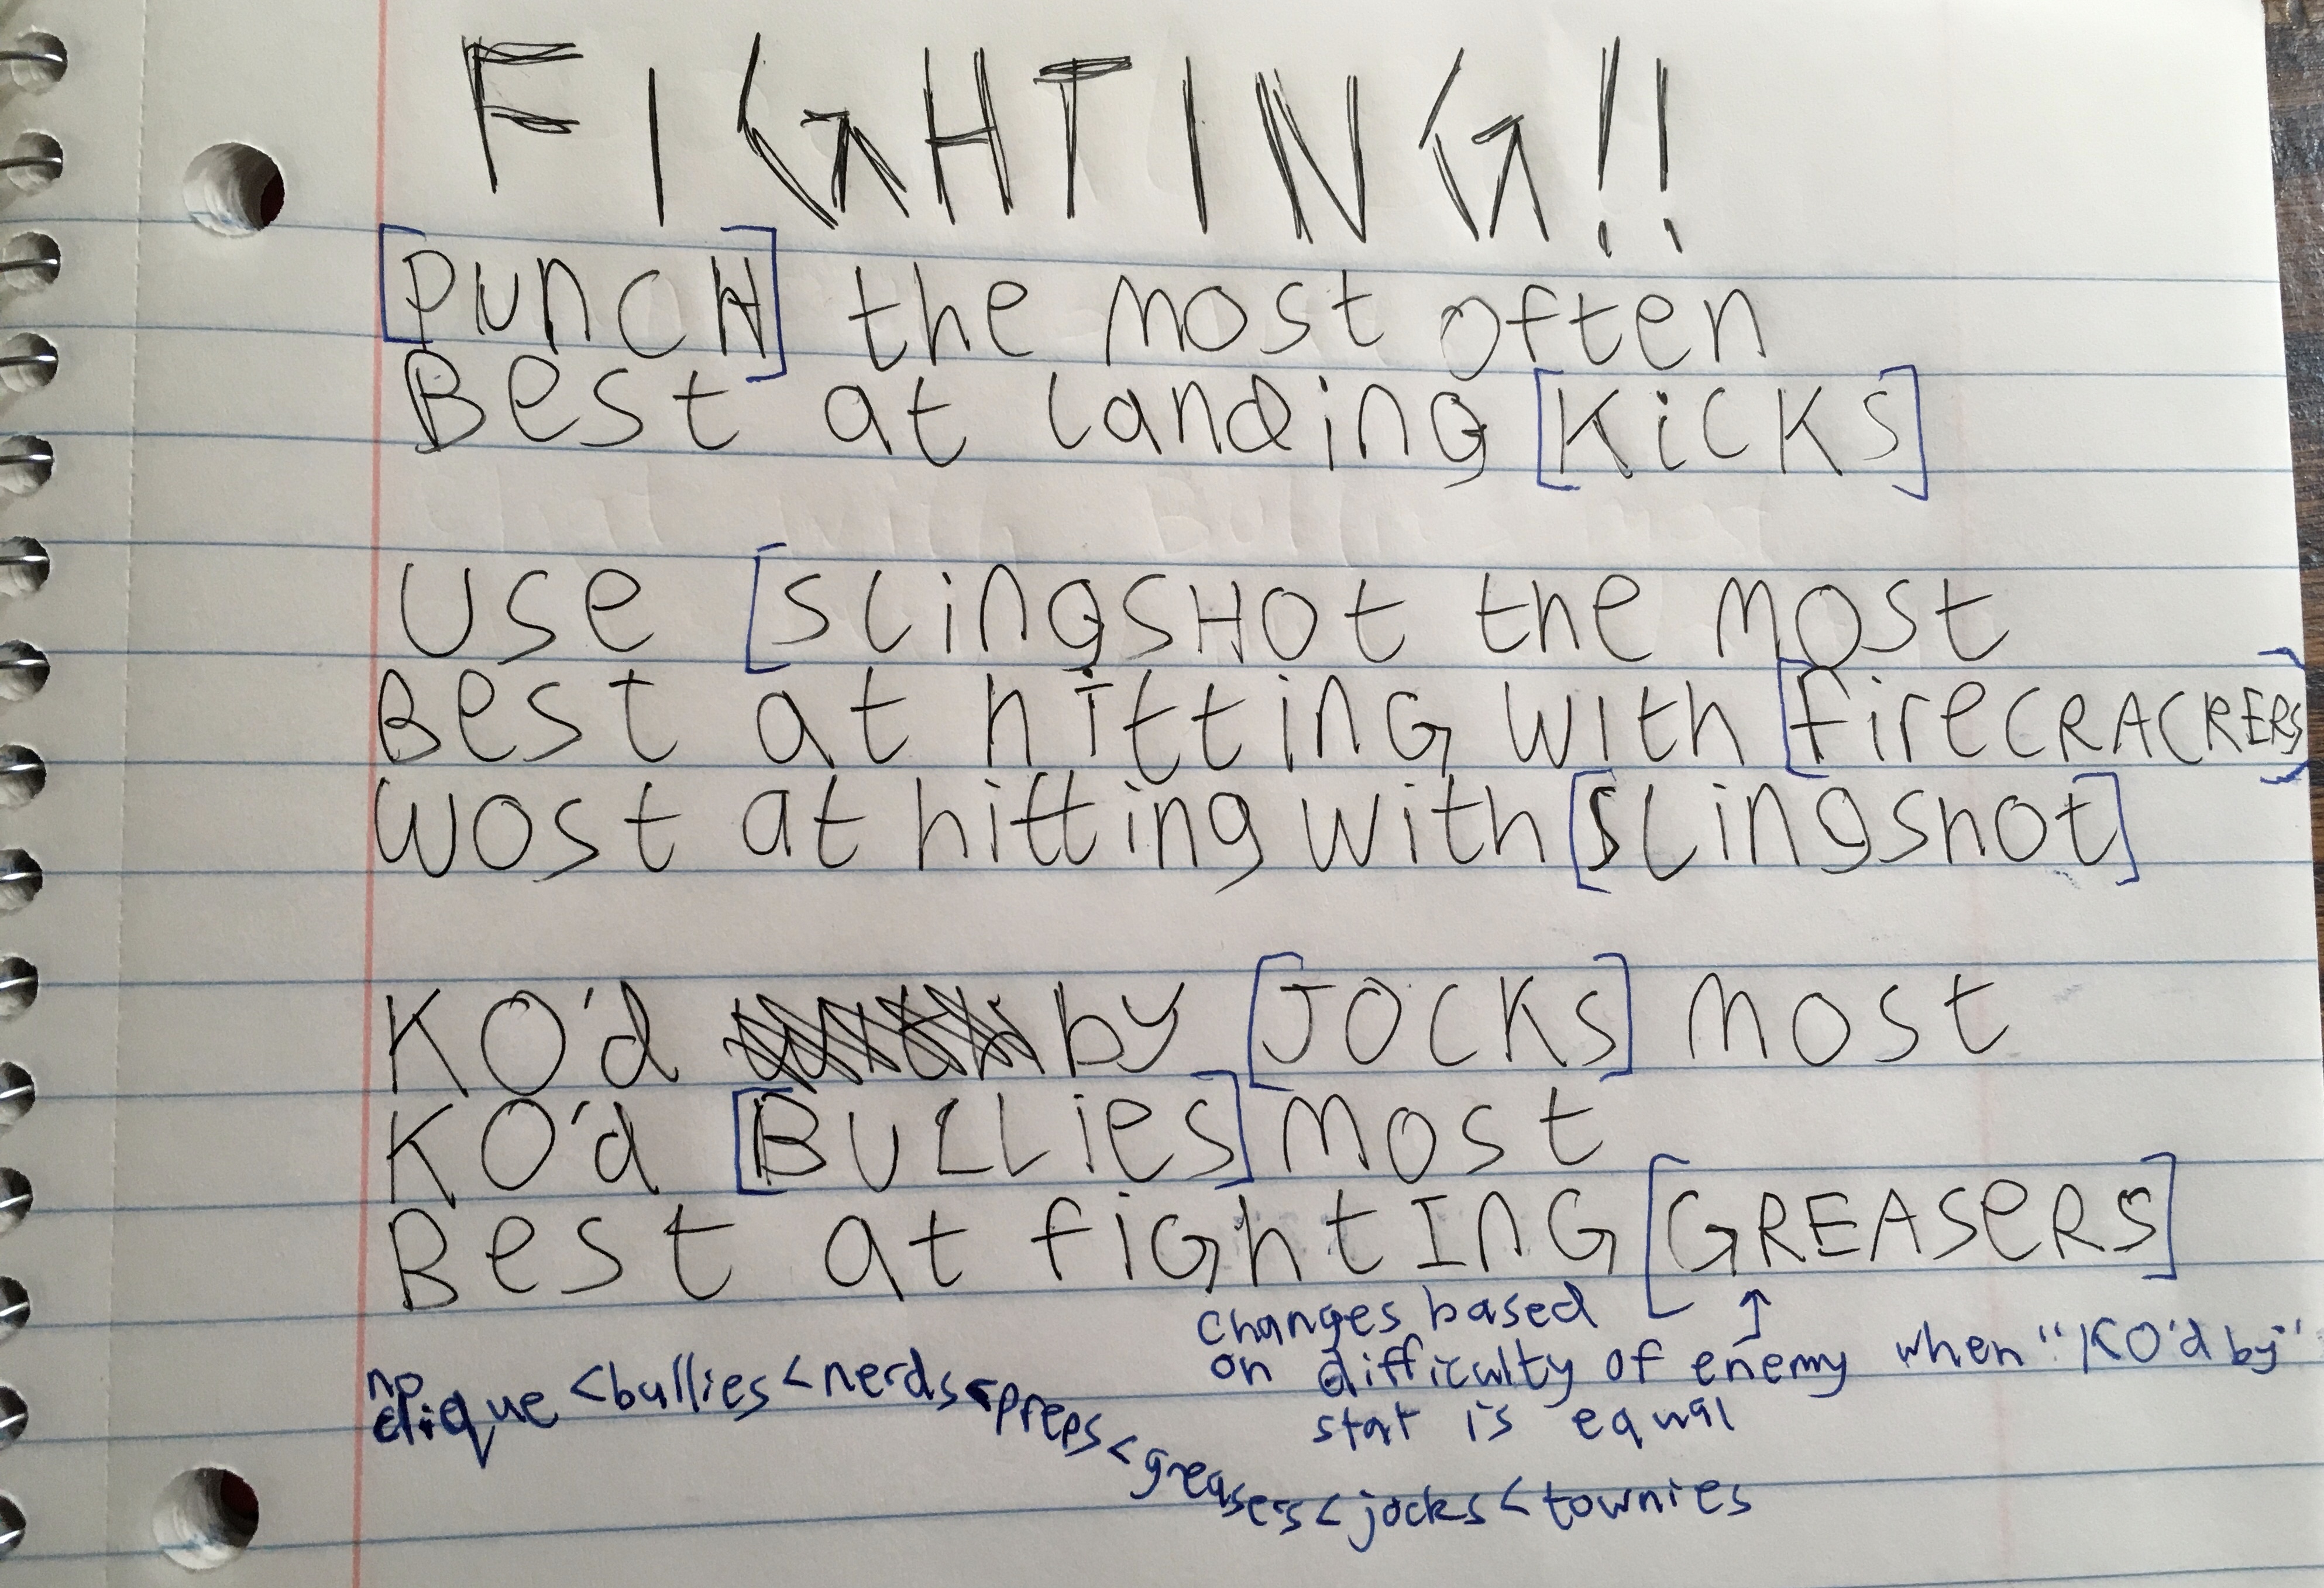 FIGHTING!!
[PUncH] the most often
Best at landing [KicKs]
Use [slingsHot the most
Best at hitting with [fireCRACKERS]
Wost at hitting with [slingshot]
KO'd by [JOCKS] most
KO'd [BULLies] most
Best at fightInG [GREASeRS]
↑
changes based
on difficulty of enemy when "KO'd by"
stat is equal
no
clique < bullies < nerds < preps < greasers < jocks < townies